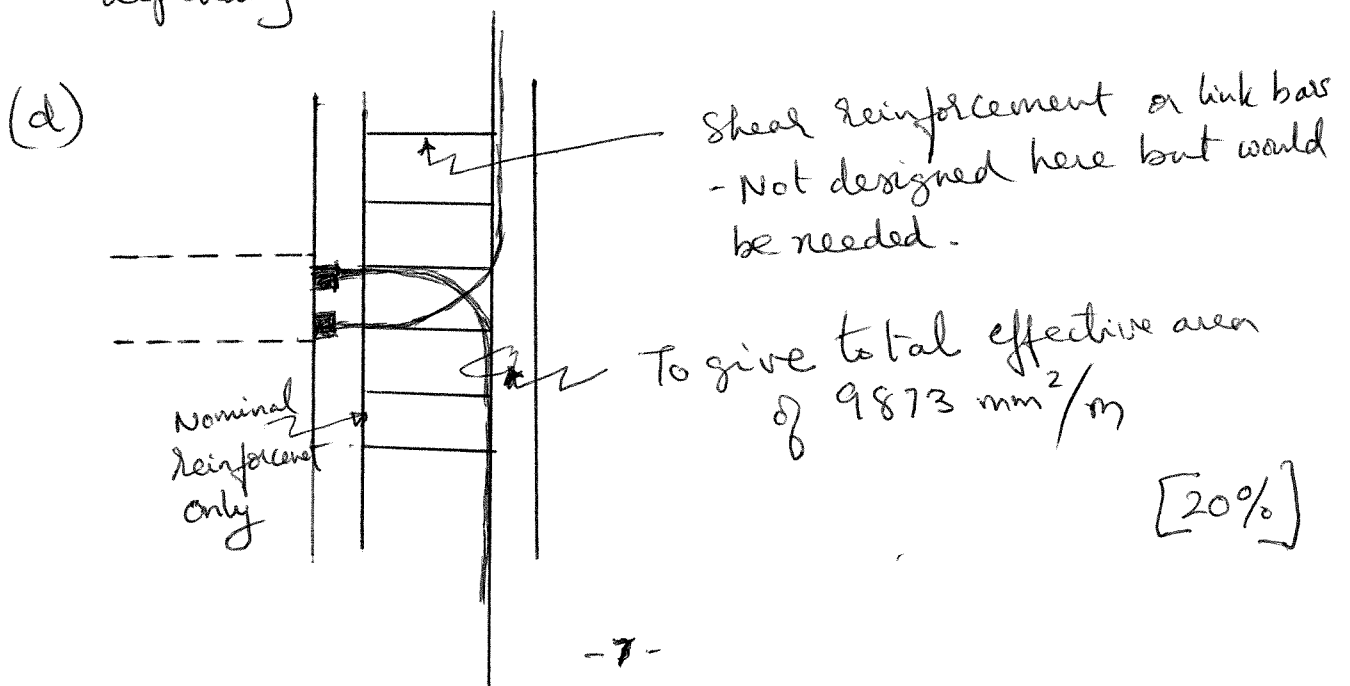 (d)
Shear reinforcement or link bars
- Not designed here but would
be needed.
To give total effective area
of 9873 mm²/m
Nominal
reinforcement
only
[20%]
-7-